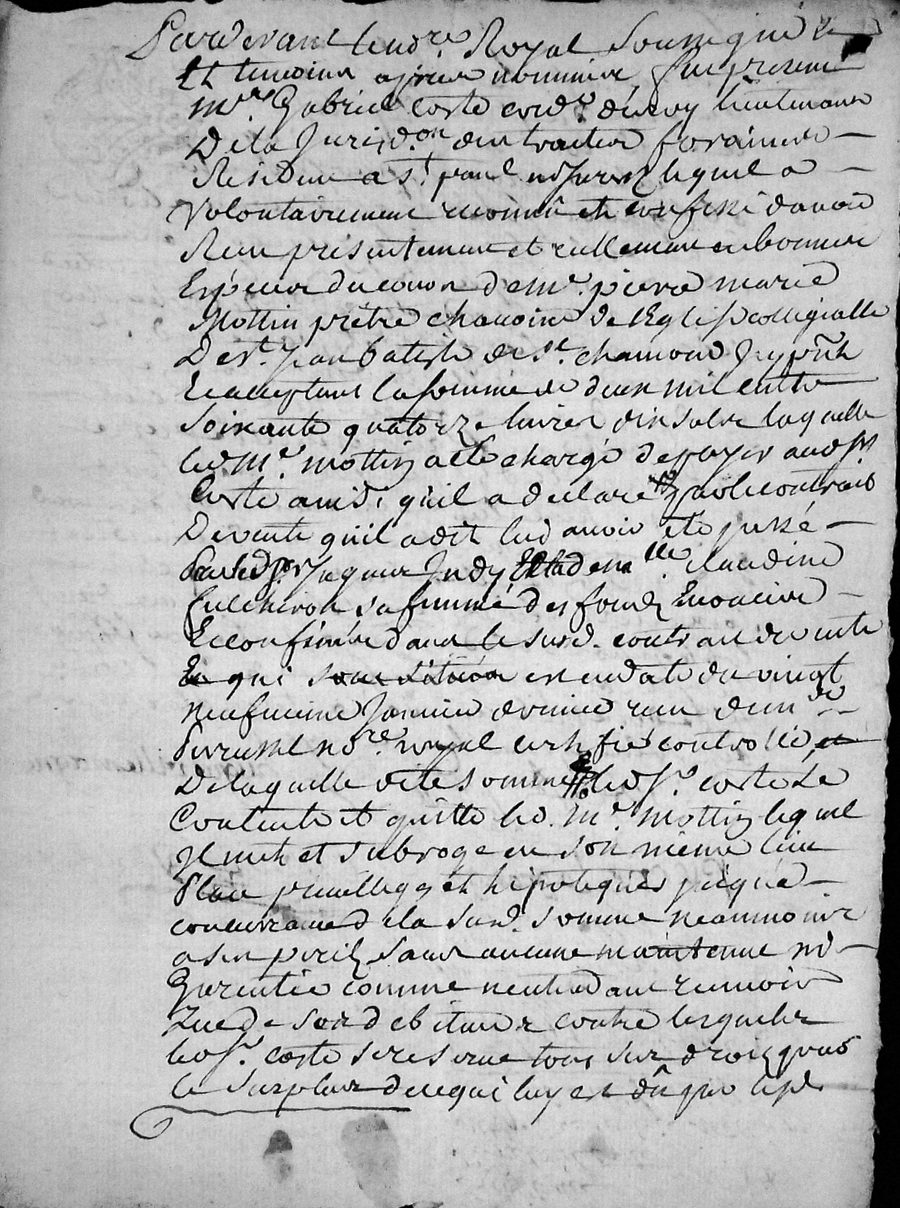 Pardevant le no.re Royal Soussigné
Et temoins apres nommés fut present
m.re Gabriel Coste con.er du roy lieutenant
De la Jurisd.on des traites foraines
Residant a S.t paul lequel a
volontairement reconnu et confessé d'avoir
Receu presentement et reellement en bonnes
Especes du cours de M.e pierre marie
Mottin prêtre chanoine de l'Eglise collegialle
De S.t Jean batiste de S.t chamond Icy pñt
Et acceptant la somme de deux mil
Soixante quatorze livres laquelle
led. M.e mottin a été chargé de payer aud. s.r
Coste ainsi qu'il a declaré par le contrait
De vente qu'il a dit lui avoir eté passé
Par led. s.r Jaques Indy Et dem.lle claudine
sa femme des fonds Enoncés
Et confinés dans le susd. contrait de vente
qui est en datte du vingt
neufvieme Janvier dernier receu
no.re royal controllé
De laquelle dite somme led. s.r coste Se
Contente et quitte led. M.e mottin lequel
Il met et subroge en son même lieu
Place privilleges et hipoteques jusqu'a
concurrance de la susd. somme neammoins
a ses perils sans aucune maintenue ni
Garentie comme
De ses debiteurs contre lesquels
led. s.r coste se reserve tous ses droits pour
le surplus de ce qui luy est dû par les